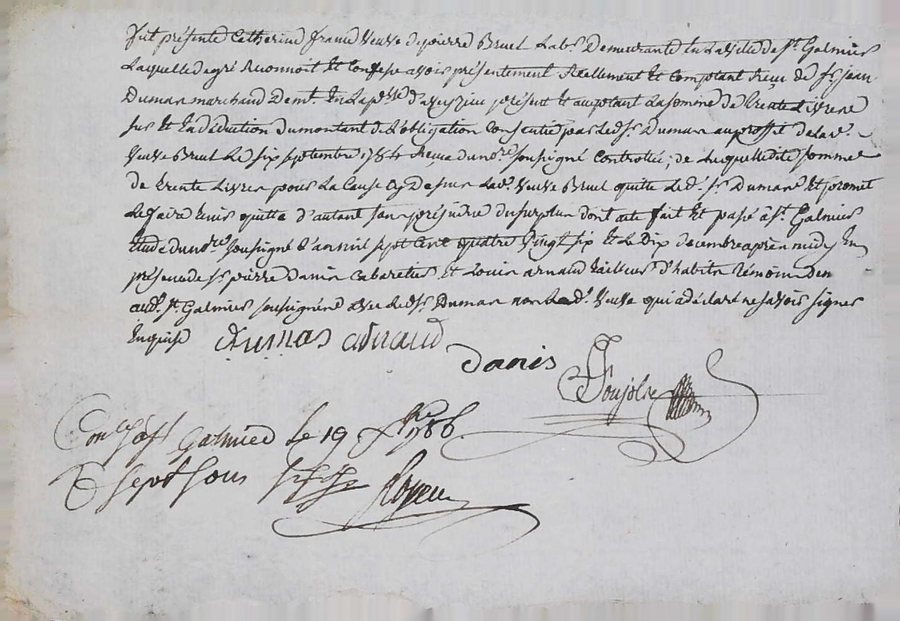 fut présente Catherine veuve de pierre Bruel Lab.r Demeurante en La ville de S.t Galmier
Laquelle de gré Reconnoit Et Confesse avoir présentement Réellement Et Comptant Reçu de S.r jean
Dumas marchand dem.t En La p.sse d'aveyzieu présent Et acceptant La somme de Trente Livres Et ce
sur Et En déduction du montant de L'obligation Consentie par Led. S.r Dumas au proffit de La d.e
veuve Bruel Le six septembre 1784 Reçue du no.re soussigné Controllée; de Laquelle dite somme
de trente Livres pour La Cause Cy Dessus Lad.e veuve Bruel quitte Led. S.r Dumas Et promet
Le faire tenir quitte d'autant sans préjudice du surplus dont acte fait Et passé à S.t Galmier
Etude du no.re soussigné L'an mil sept Cent quatre vingt six Et Le Dix décembre après midy En
présence de S.r pierre Danis Cabaretier Et Louis arnaud tailleur d'habits témoins Dem.
aud. S.t Galmier soussignés avec Led. S.r Dumas non Lad.e veuve qui a déclaré ne savoir signer
Enquise Dumas arnaud
Danis
Con.lé à S.t Galmier le 19 Xbre 1786
sept sous